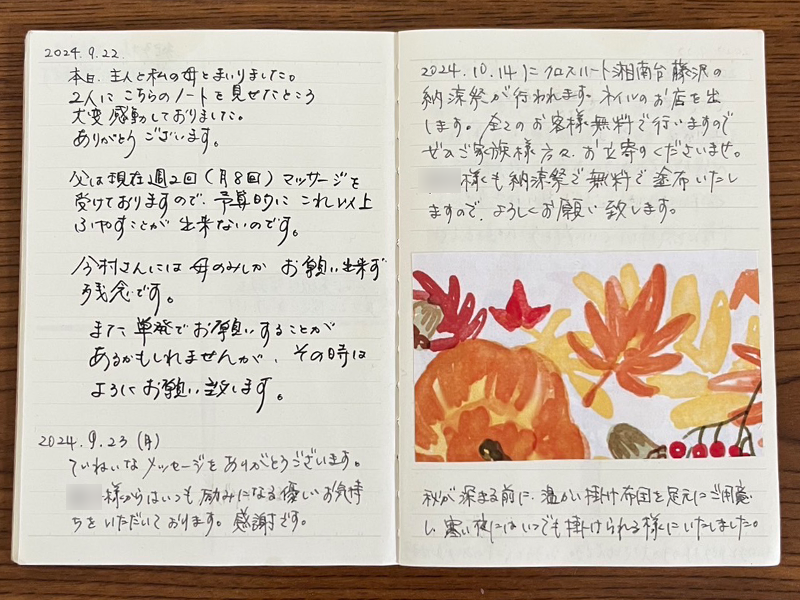 2024.9.22
本日、主人と私の母とまいりました。
2人にこちらのノートを見せたところ
大変感動しておりました。
ありがとうございます。
父は現在週2回(月8回)マッサージを
受けておりますので、予算的にこれ以上
ふやすことが出来ないのです。
今村さんには母のみしかお願い出来ず
残念です。
また単発でお願いすることが
あるかもしれませんが、その時は
よろしくお願い致します。
2024.9.23(月)
ていねいなメッセージをありがとうございます。
様からはいつも励みになる優しいお気持
ちをいただいております。感謝です。
2024.10.14にクロスハート湘南台藤沢の
納涼祭が行われます。ネイルのお店を出
します。全てのお客様無料で行いますので
ぜひご家族様方々、お立寄りくださいませ。
様も納涼祭で無料で塗布いたし
ますので、よろしくお願い致します。
秋が深まる前に、温かい掛け布団を足元にご用意
し、寒い夜にはいつでも掛けられる様にいたしました。